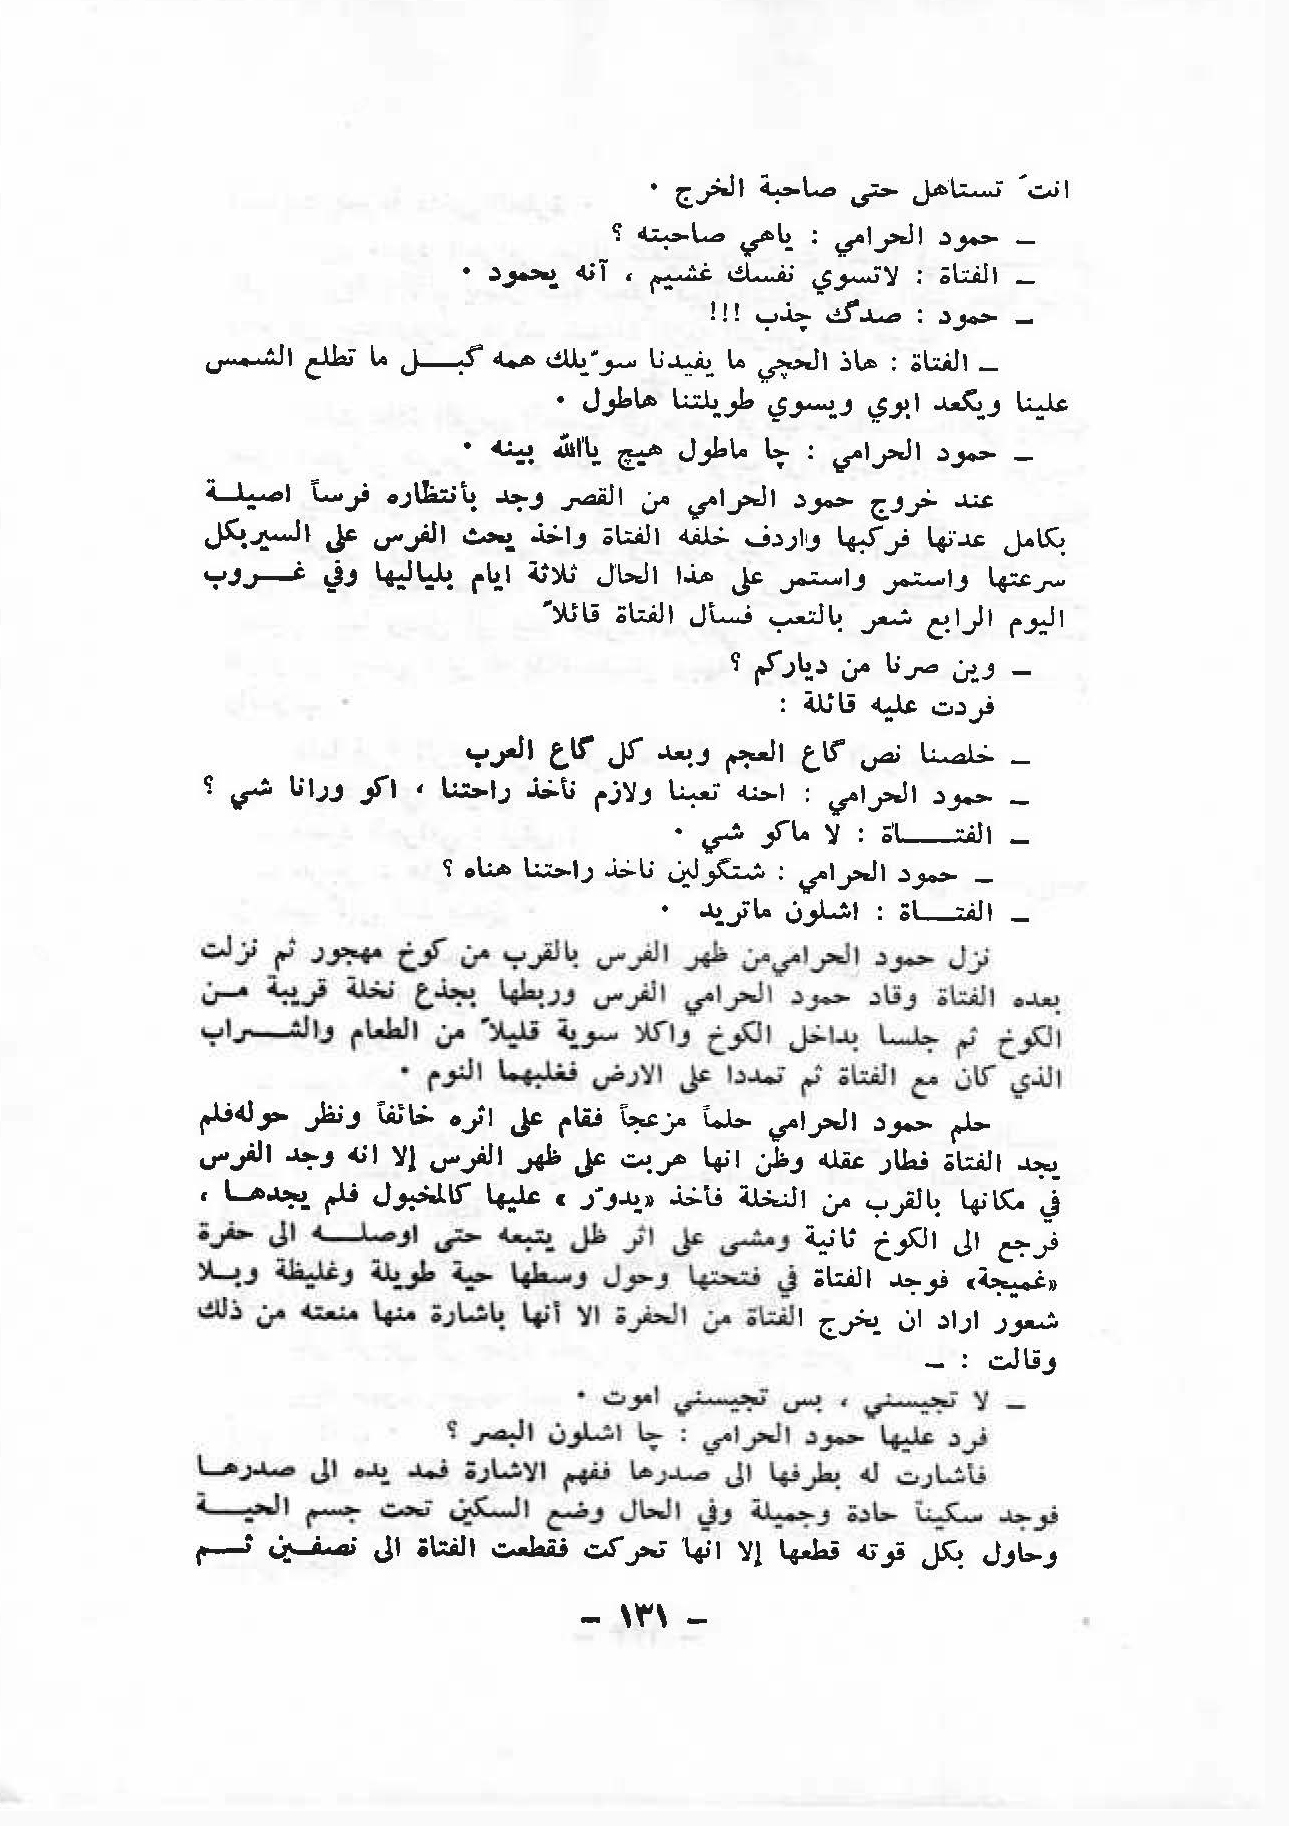 انتَ تستاهل حتى صاحبة الخرج ٠
ـ حمود الحرامي : ياهي صاحبته ؟
ـ الفتاة : لاتسوي نفسك غشيم ، آنه يحمود ٠
ـ حمود : صدگ چذب !!!
ـ الفتاة : هاذ الحچي ما يفيدنا سوّيلك همه گبــل ما تطلع الشمس
علينا ويگعد ابوي ويسوي طويلتنا هاطول ٠
ـ حمود الحرامي : چا ماطول هيچ ياالله بينه ٠
عند خروج حمود الحرامي من القصر وجد بأنتظاره فرساً اصيلـة
بكامل عدتها فركبها واردف خلفه الفتاة واخذ يحث الفرس على السيربكل
سرعتها واستمر واستمر على هذا الحال ثلاثة ايام بلياليها وفي غـــروب
اليوم الرابع شعر بالتعب فسأل الفتاة قائلاً
ـ وين صرنا من دياركم ؟
فردت عليه قائلة :
ـ خلصنا نص گاع العجم وبعد كل گاع العرب
ـ حمود الحرامي : احنه تعبنا ولازم نأخذ راحتنا ، اكو ورانا شي ؟
ـ الفتــــاة : لا ماكو شي ٠
ـ حمود الحرامي : شتگولين ناخذ راحتنا هناه ؟
ـ الفتــاة : اشلون ماتريد ٠
نزل حمود الحرامي‌من ظهر الفرس بالقرب من كوخ مهجور ثم نزلت
بعده الفتاة وقاد حمود الحرامي الفرس وربطها بجذع نخلة قريبة مــن
الكوخ ثم جلسا بداخل الكوخ واكلا سوية قليلاً من الطعام والشـــراب
الذي كان مع الفتاة ثم تمددا على الارض فغلبهما النوم ٠
حلم حمود الحرامي حلماً مزعجاً فقام على اثره خائفاً ونظر حوله‌فلم
يجد الفتاة فطار عقله وظن انها هربت على ظهر الفرس إلا انه وجد الفرس
في مكانها بالقرب من النخلة فأخذ «يدوّر » عليها كالمخبول فلم يجدهـا ،
فرجع الى الكوخ ثانية ومشى على اثر ظل يتبعه حتى اوصلــه الى حفرة
«غميجة» فوجد الفتاة في فتحتها وحول وسطها حية طويلة وغليظة وبـلا
شعور اراد ان يخرج الفتاة من الحفرة الا أنها باشارة منها منعته من ذلك
وقالت : ـ
ـ لا تجيسني ، بس تجيسني اموت ٠
فرد عليها حمود الحرامي : چا اشلون البصر ؟
فأشارت له بطرفها الى صدرها ففهم الاشارة فمد يده الى صدرهـا
فوجد سكيناً حادة وجميلة وفي الحال وضع السكين تحت جسم الحيــة
وحاول بكل قوته قطعها إلا انها تحركت فقطعت الفتاة الى نصفـين ثــم
ـ ١٣١ ـ